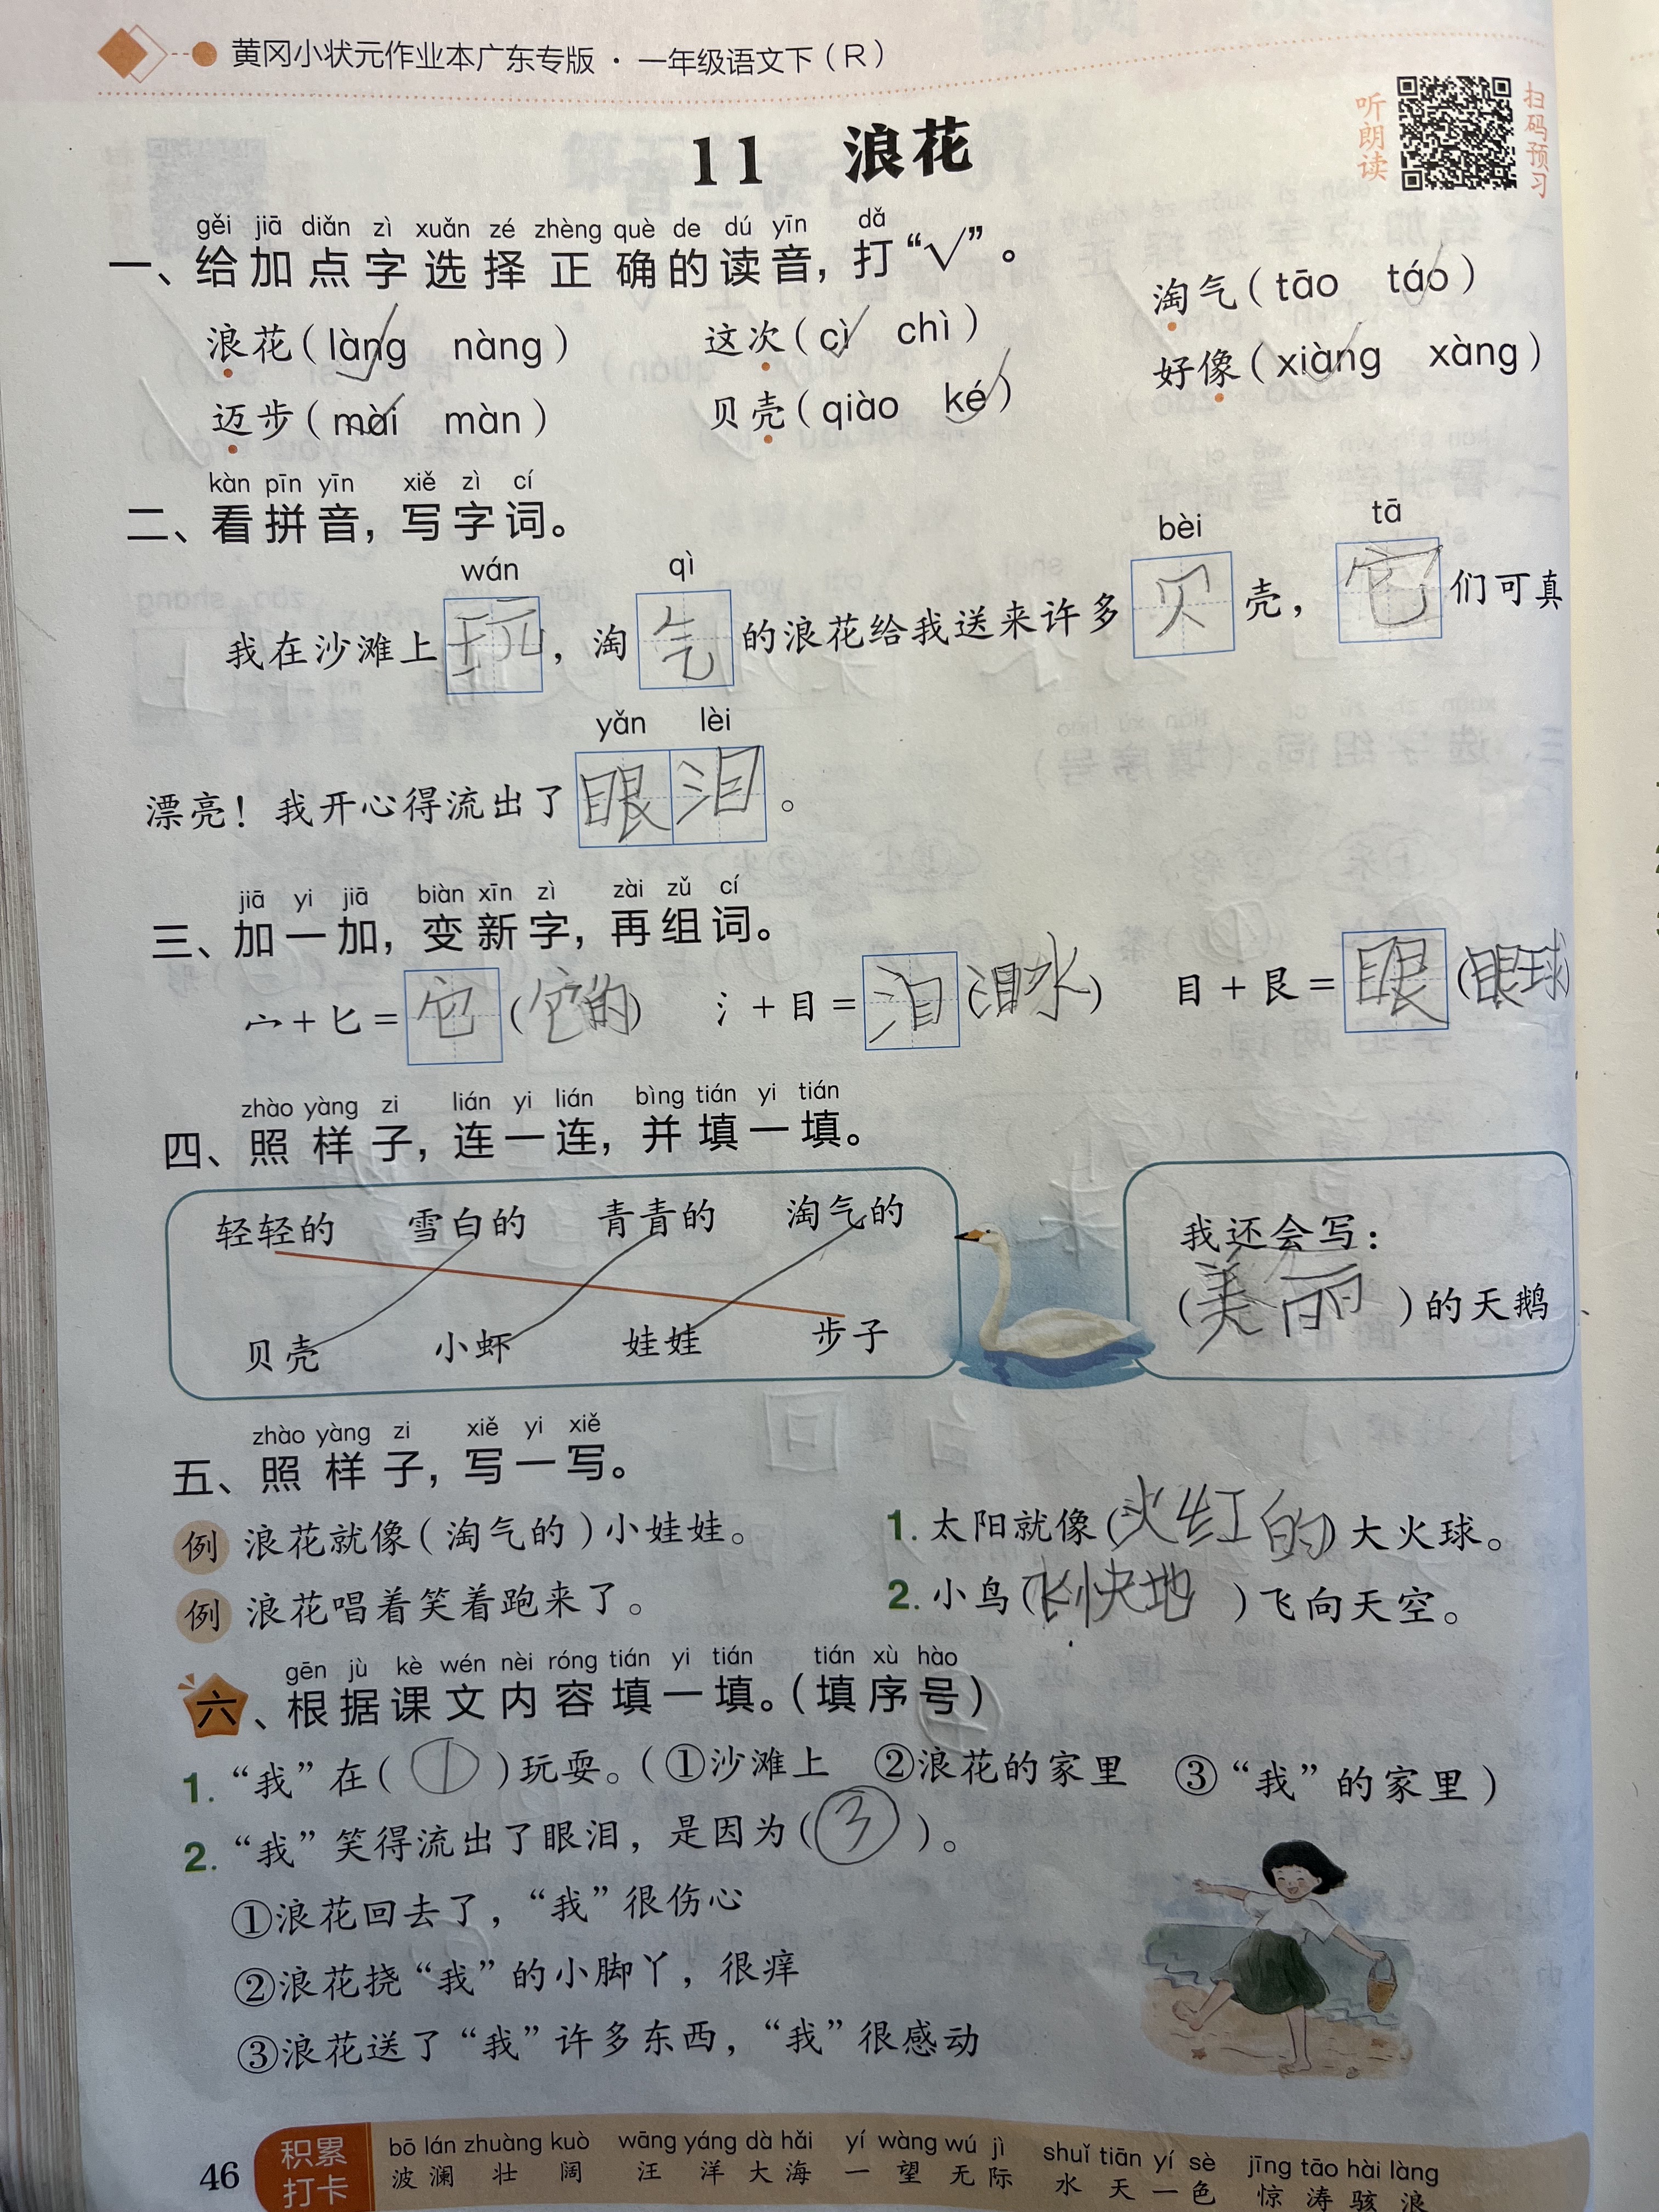 黄冈小状元作业本广东专版·一年级语文下（R）
听朗读
扫码预习
11 浪花
gěi jiā diǎn zì xuǎn zé zhèng què de dú yīn dǎ
一、给加点字选择正确的读音，打“√”。
浪花（làng√ nàng） 这次（cì√ chì） 淘气（tāo táo√）
迈步（mài√ màn） 贝壳（qiào ké√） 好像（xiàng√ xàng）
kàn pīn yīn xiě zì cí
二、看拼音，写字词。
wán qì bèi tā
我在沙滩上玩，淘气的浪花给我送来许多贝壳，它们可真
yǎn lèi
漂亮！我开心得流出了眼泪。
jiā yi jiā biàn xīn zì zài zǔ cí
三、加一加，变新字，再组词。
宀＋匕＝它（它的） 氵＋目＝泪（泪水） 目＋艮＝眼（眼球）
zhào yàng zi lián yi lián bìng tián yi tián
四、照样子，连一连，并填一填。
轻轻的 雪白的 青青的 淘气的
贝壳 小虾 娃娃 步子
我还会写：
（美丽）的天鹅
zhào yàng zi xiě yi xiě
五、照样子，写一写。
例 浪花就像（淘气的）小娃娃。
例 浪花唱着笑着跑来了。
1. 太阳就像（火红的）大火球。
2. 小鸟（飞快地）飞向天空。
gēn jù kè wén nèi róng tián yi tián tián xù hào
六、根据课文内容填一填。（填序号）
1. “我”在（①）玩耍。（①沙滩上 ②浪花的家里 ③“我”的家里）
2. “我”笑得流出了眼泪，是因为（③）。
①浪花回去了，“我”很伤心
②浪花挠“我”的小脚丫，很痒
③浪花送了“我”许多东西，“我”很感动
46
积累打卡
bō lán zhuàng kuò wāng yáng dà hǎi yí wàng wú jì shuǐ tiān yí sè jīng tāo hài làng
波澜壮阔 汪洋大海 一望无际 水天一色 惊涛骇浪